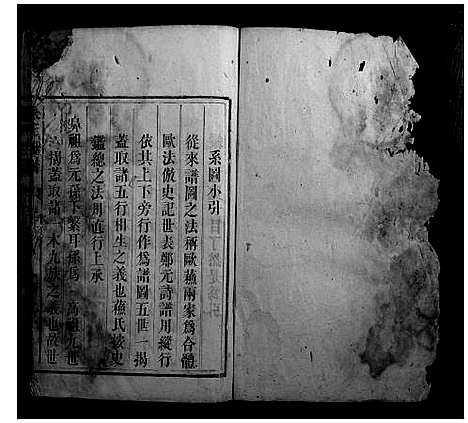 系圖小引
從來譜圖之法稱歐蘇兩家爲合體
歐法倣史記世表鄭元詩譜用縱行
依其上下旁行作爲譜圖五世一揭
蓋取諸五行相生之義也蘇氏按史
鑑總之法用直行上承
鼻祖爲元孫下繫耳孫爲 高祖九世
一揭蓋取諸一本九族之義也故世